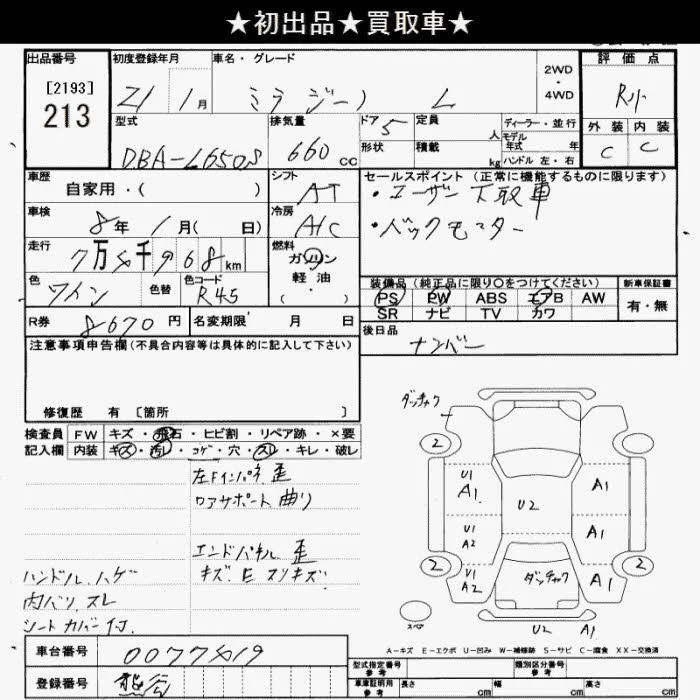 ★初出品★買取車★
出品番号 初度登録年月 車名・グレード 評価点
[2193]
213
21 1月 ミラジーノ L
2WD
・
4WD
R小
外装 内装
C C
型式 排気量 ドア 定員 ディーラー・並行
DBA-L650S 660cc 5 人
形状 積載 kg
モデル年式 年
ハンドル 左・右
車歴 シフト
自家用・( ) AT
セールスポイント (正常に機能するものに限ります)
・ユーザー下取車
・バックモニター
車検 冷房
8年 1月( 日) A/C
走行 燃料
7万 千968km
ガソリン
軽油
( ・ )
色 色替 色コード
ワイン R45
装備品 (純正品に限り○をつけてください) 新車保証書
PS PW ABS エアB AW 有・無
SR ナビ TV カワ
R券 8670円 名変期限 月 日
後日品
ナンバー
注意事項申告欄(不具合内容等は具体的に記入して下さい)
修復歴 有 [箇所 ]
検査員 FW キズ・飛石・ヒビ割・リペア跡・×要
記入欄 内装 キズ・汚レ・コゲ・穴・スレ・キレ・破レ
左Fインパネ 歪
コアサポート 曲り
エンドパネル 歪
キズ. E スリキズ
ハンドル ハゲ
内バリ スレ
シートカバー付
ダッチャク
2 2
U1
A1 A1
U2
U1
A2 A1
2 U1
A2 ダッチャク A1 2
スペア U2 A1
A-キズ E-エクボ U-凹み W-補修跡 S-サビ C-腐食 XX-交換済
車台番号
登録番号 熊谷
型式指定番号 参考 類別区分番号 参考
車庫証明用 参考 長さ cm 幅 cm 高さ cm